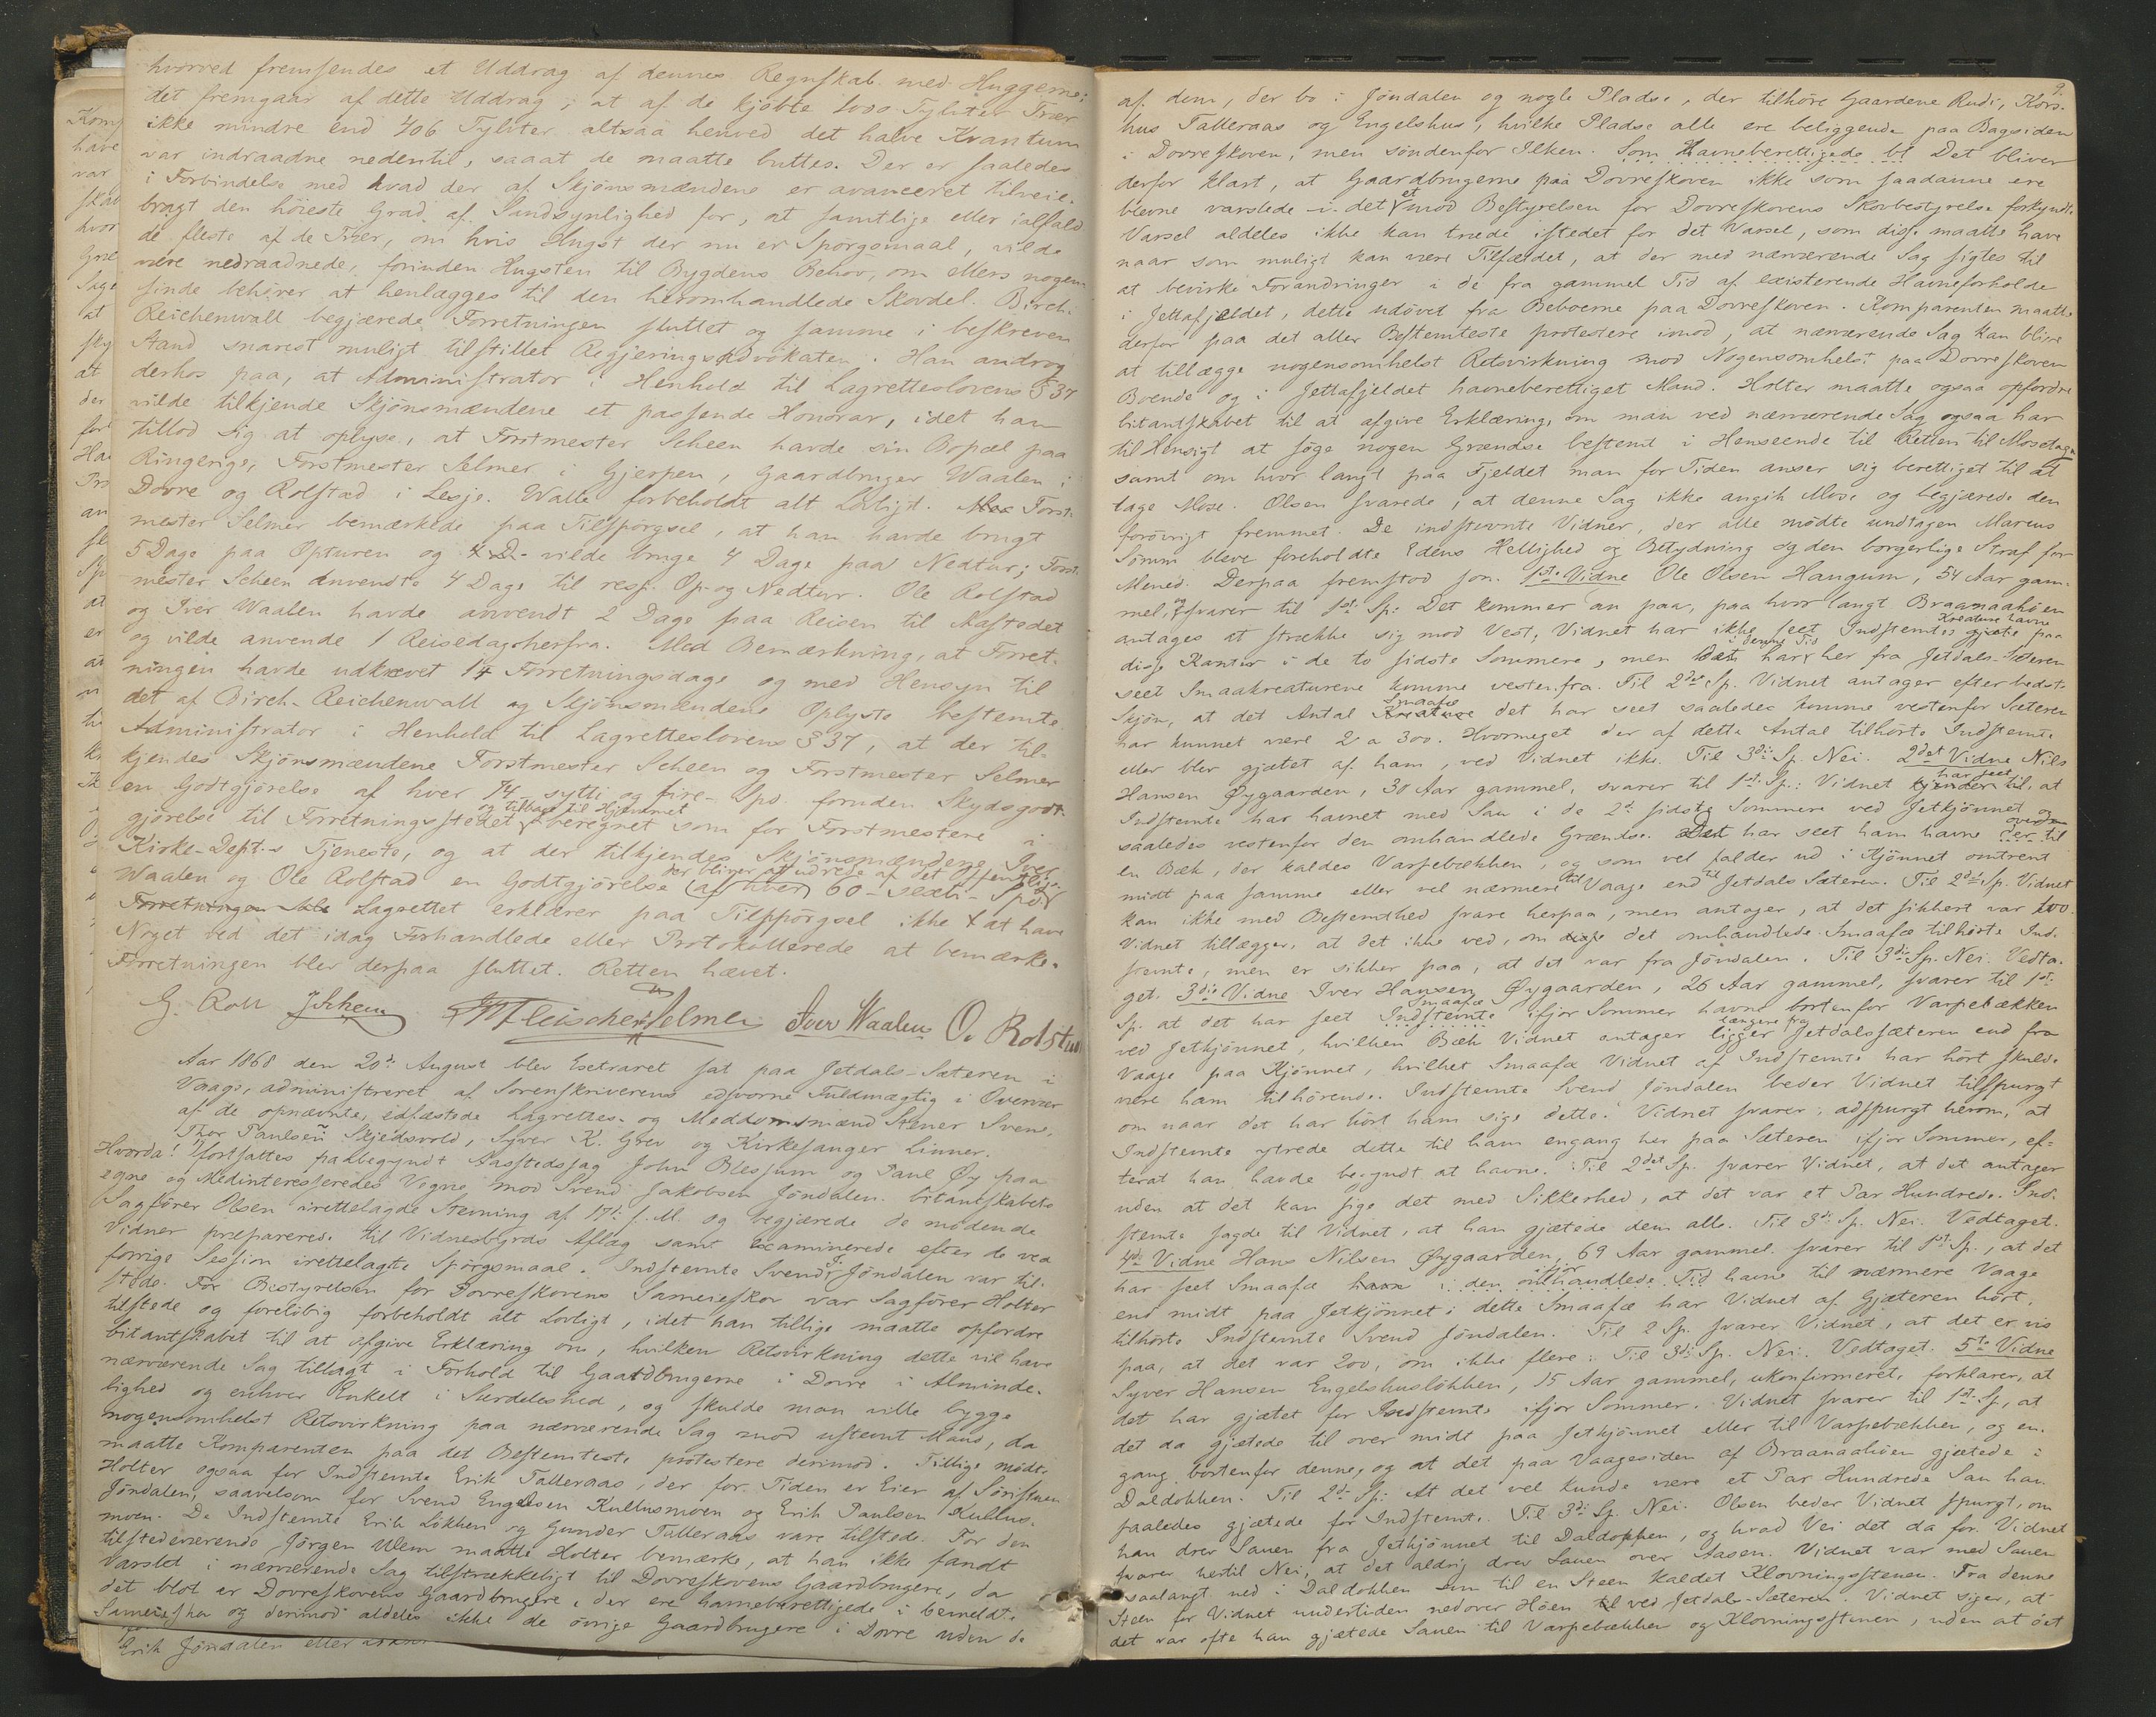 hvorved fremsendes et Uddrag af dennes Regnskab med Huggerne;
det fremgaar af dette Uddrag, at af de kjøbte 1000 Tylvter Trær
ikke mindre end 406 Tylvter altsaa henved det halve Kvantum
var indraadne nedentil, saaat de maatte buttes. Der er saaledes
i Forbindelse med hvad der af Skjønsmændene er avanceret tilveie-
bragt den høieste Grad af Sandsynlighed for, at samtlige eller ialfald
de fleste af de Trær, om hvis Hugst der nu er Spørgsmaal, vilde
være nedraadnede, forinden Hugsten til Bygdens Behov, om ellers nogen-
sinde behøver at henlægges til den heromhandlede Skovdel. Birch-
Reichenwall begjærede Forretningen sluttet og samme i beskreven
Stand snarest muligt tilstillet Regjeringsadvokaten. Han androg
derhos paa, at Administrator i Henhold til Lagretteslovens § 37
vilde tilkjende Skjønsmændene et passende Honorar, idet han
tillod sig at oplyse, at Forstmester Scheen havde sin Bopæl paa
Ringerige, Forstmester Selmer i Gjerpen, Gaardbruger Waalen i
Dovre og Rolstad i Lesje. Walle forbeholdt alt Lovligt. Forst-
mester Selmer bemærkede paa Tilspørgsel, at han havde brugt
5 Dage paa Opturen og vilde bruge 4 Dage paa Nedtur; Forst-
mester Scheen anvendte 4 Dage til resp. Op- og Nedtur. Ole Rolstad
og Iver Waalen havde anvendt 2 Dage paa Reisen til Aastedet
og vilde anvende 1 Reisedag herfra. Med Bemærkning, at Forret-
ningen havde udkrævet 14 Forretningsdage og med Hensyn til
det af Birch-Reichenwall og Skjønsmændene Oplyste bestemte
Administrator i Henhold til Lagretteslovens § 37, at der til-
kjendes Skjønsmændene Forstmester Scheen og Forstmester Selmer
en Godtgjørelse af hver 74 sytti og fire Spd. foruden Skydsgodt-
og tilbage til Hjemmet
gjørelse til Forretningsstedet beregnet som for Forstmestere i
Kirke-Dept.s Tjeneste, og at der tilkjendes Skjønsmændene Iver
der bliver at udrede af det Offentlige
Waalen og Ole Rolstad en Godtgjørelse af hver 60 - sexti - Spd.
Lagrettet erklærer paa Tilspørgsel ikke at have
Noget ved det idag Forhandlede eller Protokollerede at bemærke.
Forretningen blev derpaa sluttet. Retten hævet.
G. Roll JScheen Fleischer Selmer Iver Waalen O. Rolstad
Aar 1868 den 20de August blev Extraret sat paa Jetdals-Sæteren i
Vaage, administreret af Sorenskriverens edsvorne Fuldmægtig i Overvær
af de opnævnte, edfæstede Lagrettes- og Meddomsmænd Stener Svens,
Thor Paulsen Skjedsvold, Syver K. Grev og Kirkesanger Linner.
Hvorda! fortsattes paabegyndt Aastedssag John Blessum og Paul Øy paa
egne og Medinteresseredes Vegne mod Svend Jakobsen Jöndalen. Citantskabets
Sagfører Olsen irettelagde Stevning af 17de f. M. og begjærede de mødende
Vidner præpareredé til Vidnesbyrds Aflæg samt examinerede efter de ved
forrige Session irettelagte Spørgsmaal. Indstevnte Svend J. Jöndalen var til-
stede. For Bestyrelsen for Dovreskovens Sameieskov var Sagfører Holter
tilstede og foreløbig forbeholdt alt Lovligt, idet han tillige maatte opfordre
Citantskabet til at afgive Erklæring om, hvilken Retsvirkning dette vil have
nærværende Sag tillagt i Forhold til Gaardbrugerne i Dovre i Alminde-
lighed og enhver Enkelt i Særdeleshed, og skulde man ville bygge
nogensomhelst Retsvirkning paa nærværende Sag mod ustevnt Mand, da
maatte Komparenten paa det Bestemteste protestere derimod. Tillige mødte
Holter ogsaa for Indstemte Erik Talleraas, der for Tiden er Eier af Söristuen
Jöndalen, saavelsom for Svend Engelsen Kullusmoen og Erik Paulsen Kullus-
moen. De Indstemte Erik Lökken og Gunder Talleraas vare tilstede. For den
tilstedeværende Jörgen Ulem maatte Holter bemærke, at han ikke fandt
Varslet i nærværende Sag tilstrækkeligt til Dovreskovens Gaardbrugere, da
det blot er Dovreskovens Gaardbrugere, der ere havneberettigede i bemeldte
Sameieskov og derimod aldeles ikke de øvrige Gaardbrugere i Dovre uden de
Erik Jöndalen eller
9.
af dem, der bo i Jöndalen og nogle Pladse, der tilhöre Gaardene Rudi, Kors-
hus Talleraas og Engelshus, hvilke Pladse alle ere beliggende paa Bagsiden
i Dovreskoven, men søndenfor Ilken. Som Havneberettigede bl Det bliver
derfor klart, at Gaardbrugerne paa Dovreskoven ikke som saadanne ere
blevne varslede i det et mod Bestyrelsen for Dovreskovens Skovbestyrelse forkyndt
Varsel aldeles ikke kan træde istedet for det Varsel, som disse maatte have
naar som muligt kan være Tilfældet, at der med nærværende Sag sigtes til
at bevirke Forandringer i de fra gammel Tid af existerende Havneforholde
i Jettafjeldet, dette udövet fra Beboerne paa Dovreskoven. Komparenten maatte
derfor paa det aller Bestemteste protestere imod, at nærværende Sag kan blive
at tillægge nogensomhelst Retsvirkning mod Nogensomhelst paa Dovreskoven
Boende og i Jettafjeldet havneberettiget Mand. Holter maatte ogsaa opfordre
Citantskabet til at afgive Erklæring, om man ved nærværende Sag ogsaa har
til Hensigt at söge nogen Grændse bestemt i Henseende til Retten til Mosetage
samt om hvor langt paa Fjeldet man for Tiden anser sig berettiget til at
tage Mose. Olsen svarede, at denne Sag ikke angik Mose og begjærede den
forövrigt fremmet. De indstevnte Vidner, der alle mødte undtagen Marcus
Sömm bleve foreholdte Edens Hellighed og Betydning og den borgerlige Straf for
Mened. Derpaa fremstod som 1ste Vidne Ole Olsen Haugum, 54 Aar gam-
mel, og svarer til 1ste Sp: Det kommer an paa, paa hvor langt Braanaahöen
Kreature havne
antages at strække sig mod Vest, Vidnet har ikke seet Indstemtes gjæte paa
denne Tid
disse Kanter i de to sidste Sommere, men har her fra Jetdals-Sæteren
seet Smaakreaturene komme vestenfra. Til 2det Sp. Vidnet antager efter bedste
Smaafæ
Skjön, at det Antal Kreature det har seet saaledes komme vestenfor Sæteren
har kunnet være 2 a 300. Hvormeget der af dette Antal tilhörte Indstemte
eller blev gjætet af ham, ved Vidnet ikke. Til 3die Sp. Nei. 2det Vidne Nils
har seet
Hansen Øygaarden, 30 Aar gammel, svarer til 1ste Sp.: Vidnet kjender til, at
Indstemte har havnet med Sau i de 2de sidste Sommere ved Jetkjönnet og
saaledes vestenfor den omhandlede Grændse. Det har seet ham havne der til
en Bæk, der kaldes Varpebækken, og som vel falder ud i Kjönnet omtrent
midt paa samme eller vel nærmere til Vaage end til Jetdals Sæteren. Til 2det Sp. Vidnet
kan ikke med Bestemthed svare herpaa, men antager, at det sikkert var 100.
Vidnet tillægger, at det ikke ved, om det omhandlede Smaafæ tilhörte Ind-
stemte, men er sikker paa, at det var fra Jöndalen. Til 3die Sp. Nei. Vedta-
get. 3die Vidne Iver Hansen Øygaarden, 26 Aar gammel, svarer til 1ste
Smaafæ
Sp. at det har seet Indstemte ifjor Sommer havne bortenfor Varpebækken
længere fra
ved Jetkjönnet, hvilken Bæk Vidnet antager ligger Jetdalssæteren end fra
Vaage paa Kjönnet, hvilket Smaafæ Vidnet af Indstemte har hört skulde
være ham tilhörende. Indstemte Svend Jöndalen beder Vidnet tilspurgt
om naar det har hört ham sige dette. Vidnet svarer, adspurgt herom, at
Indstemte ytrede dette til ham engang her paa Sæteren ifjor Sommer, ef-
terat han havde begyndt at havne. Til 2det Sp. svarer Vidnet, at det antager
uden at det kan sige det med Sikkerhed, at det var et Par Hundrede. Ind-
stemte sagde til Vidnet, at han gjætede dem alle. Til 3die Sp. Nei. Vedtaget.
4de Vidne Hans Nilsen Øygaarden, 69 Aar gammel, svarer til 1ste Sp., at det
ifjor
har seet Smaafæ i den omhandlede Tid havne til nærmere Vaage
end midt paa Jetkjönnet; dette Smaafæ har Vidnet af Gjæteren hört,
tilhörte Indstemte Svend Jöndalen. Til 2 Sp. svarer Vidnet, at det er vis
paa, at det var 200, om ikke flere. Til 3die Sp. Nei. Vedtaget. 5te Vidne
Syver Hansen Engelshuslökken, 15 Aar gammel, ukonfirmeret, forklarer, at
det har gjætet for Indstemte ifjor Sommer. Vidnet svarer til 1ste Sp, at
det da gjætede til over midt paa Jetkjönnet eller til Varpebækken, og en-
gang bortenfor denne, og at det paa Vaagesiden af Braanaahöen gjætede i
Daldokken. Til 2det Sp: At det vel kunde være et Par Hundrede Sau han
saaledes gjætede for Indstemte. Til 3die Sp. Nei. Olsen beder Vidnet spurgt, om
han drev Sauen fra Jetkjönnet til Daldokken, og hvad Vei det da for. Vidnet
svarer hertil Nei, at det aldrig drev Sauen over Aasen. Vidnet var med Sauen
saalangt ned i Daldokken som til en Steen kaldet Klovningsstenen. Fra denne
Steen før Vidnet undertiden nedover Höen til ved Jetdals-Sæteren. Vidnet siger, at
det var ofte han gjætede Sauen til Varpebækken og Klovningsstenen, uden at det